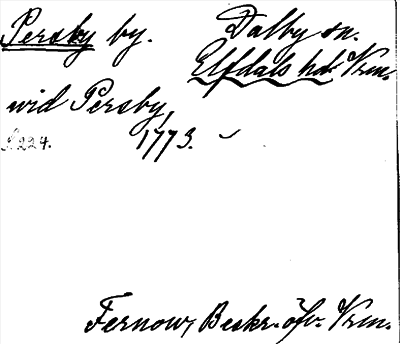 Persby by. Dalby sn.
Elfdals hd. Vrm.
wid Persby,
S. 224. 1773.
Fernow, Beskr. öfv. Vrm.